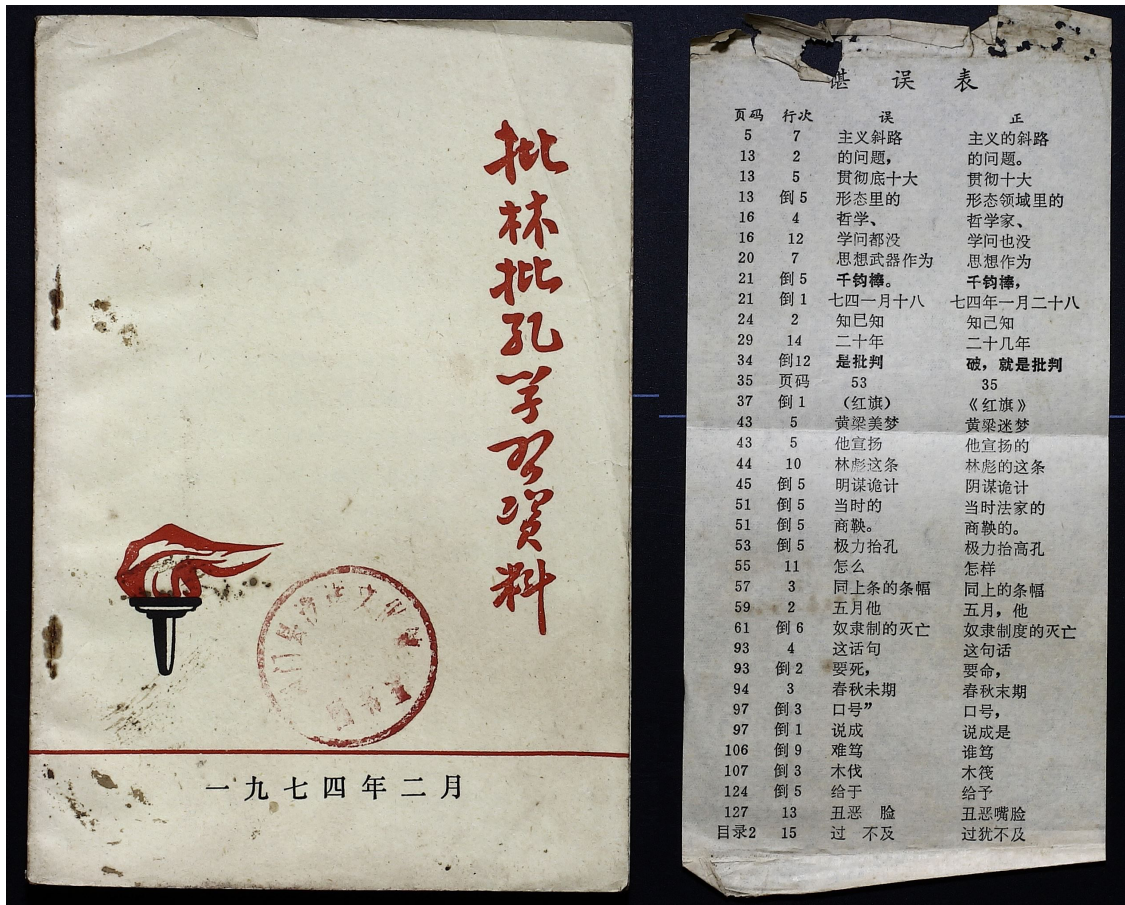 批林批孔学习资料
一九七四年二月
误表
页码 行次 误 正
5 7 主义斜路 主义的斜路
13 2 的问题， 的问题。
13 5 贯彻底十大 贯彻十大
13 倒5 形态里的 形态领域里的
16 4 哲学、 哲学家、
16 12 学问都没 学问也没
20 7 思想武器作为 思想作为
21 倒5 千钧棒。 千钧棒，
21 倒1 七四一月十八 七四年一月二十八
24 2 知巳知 知己知
29 14 二十年 二十几年
34 倒12 是批判 破，就是批判
35 页码 53 35
37 倒1 （红旗） 《红旗》
43 5 黄梁美梦 黄粱迷梦
43 5 他宣扬 他宣扬的
44 10 林彪这条 林彪的这条
45 倒5 明谋诡计 阴谋诡计
51 倒5 当时的 当时法家的
51 倒5 商鞅。 商鞅的。
53 倒5 极力抬孔 极力抬高孔
55 11 怎么 怎样
57 3 同上条的条幅 同上的条幅
59 2 五月他 五月，他
61 倒6 奴隶制的灭亡 奴隶制度的灭亡
93 4 这话句 这句话
93 倒2 要死， 要命，
94 3 春秋未期 春秋末期
97 倒3 口号” 口号，
97 倒1 说成 说成是
106 倒9 难笃 谁笃
107 倒3 木伐 木筏
124 倒5 给于 给予
127 13 丑恶 脸 丑恶嘴脸
目录2 15 过 不及 过犹不及